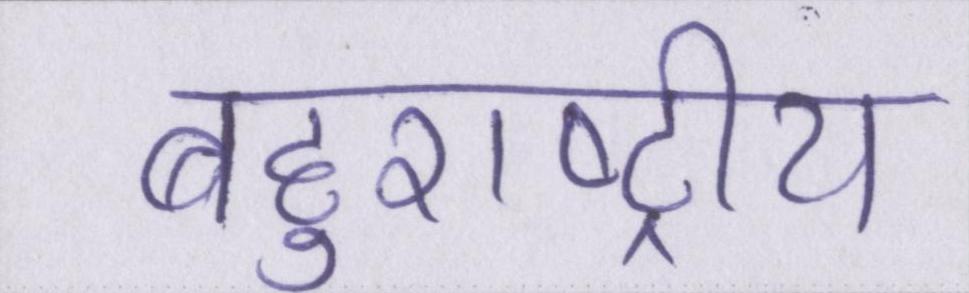 बहुराष्ट्रीय